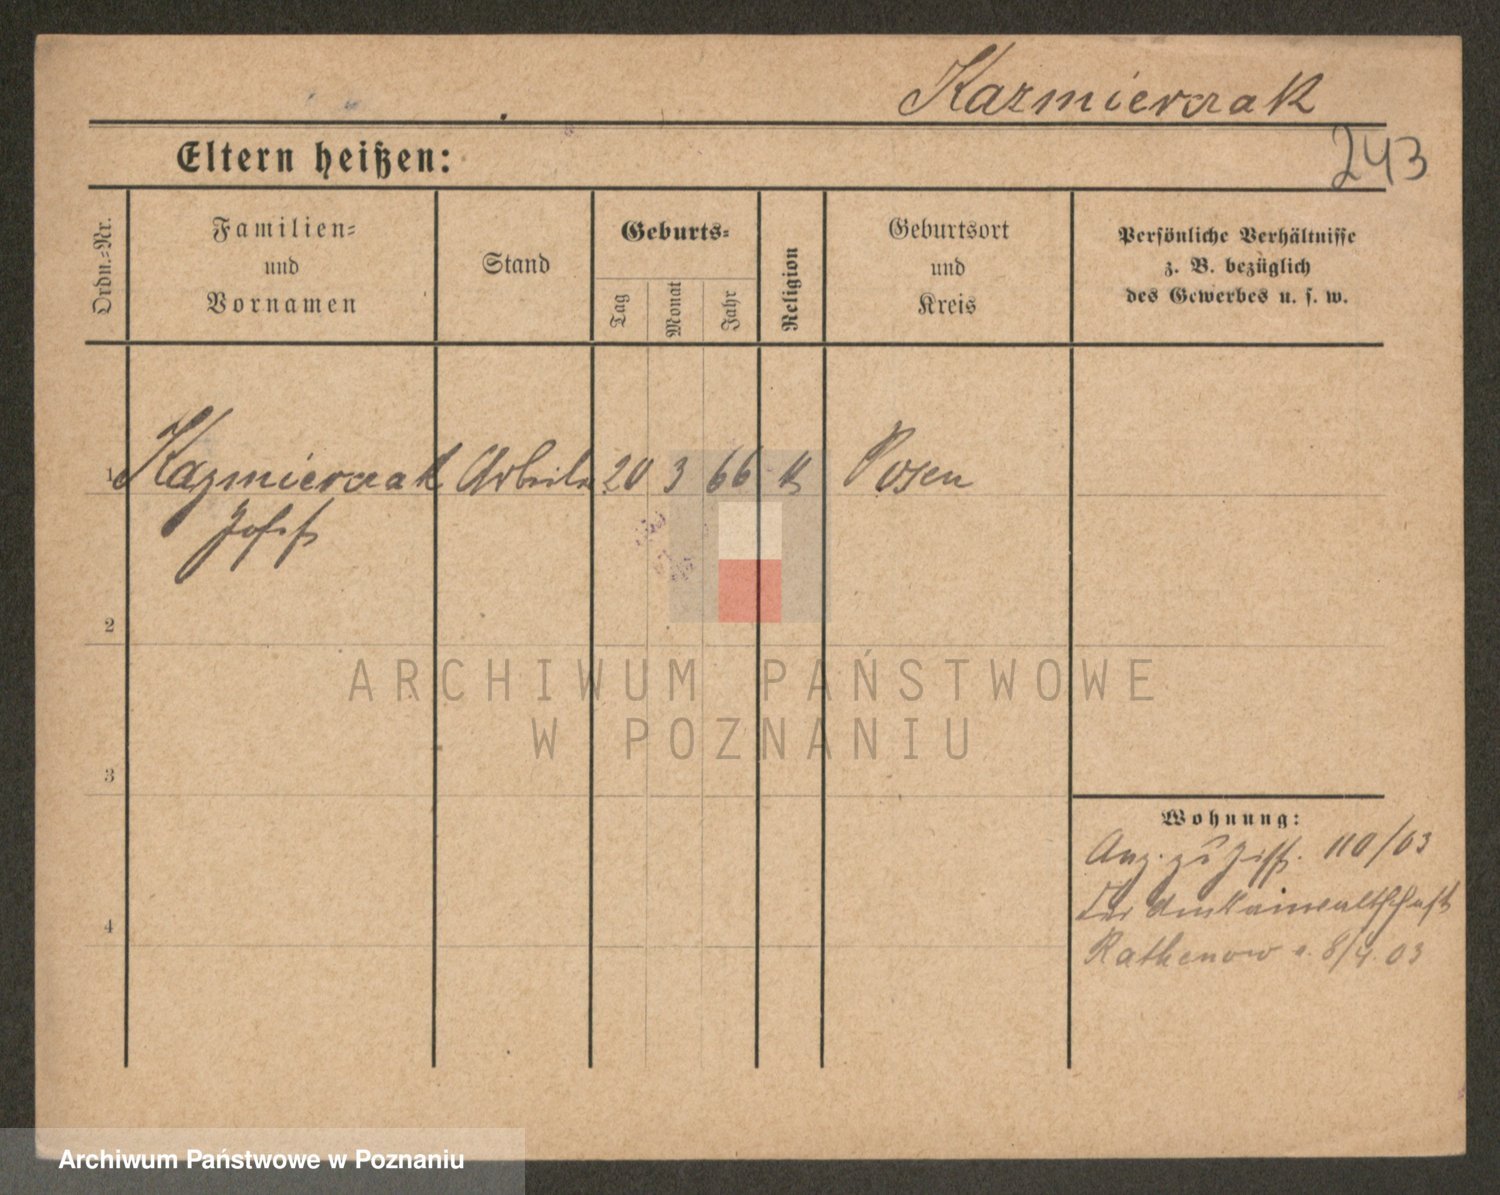 Kazmierczak
243
Eltern heißen:
Ordn.-Nr.
Familien-
und
Vornamen
Stand
Geburts-
Tag
Monat
Jahr
Religion
Geburtsort
und
Kreis
Persönliche Verhältnisse
z. B. bezüglich
des Gewerbes u. s. w.
1 Kazmierczak Arbeiter 20 3 66 k Posen
Josef
2
3
4
Wohnung:
Anz. zu 110/03
Der
Rathenow 8/4.03
ARCHIWUM PAŃSTWOWE
W POZNANIU
Archiwum Państwowe w Poznaniu